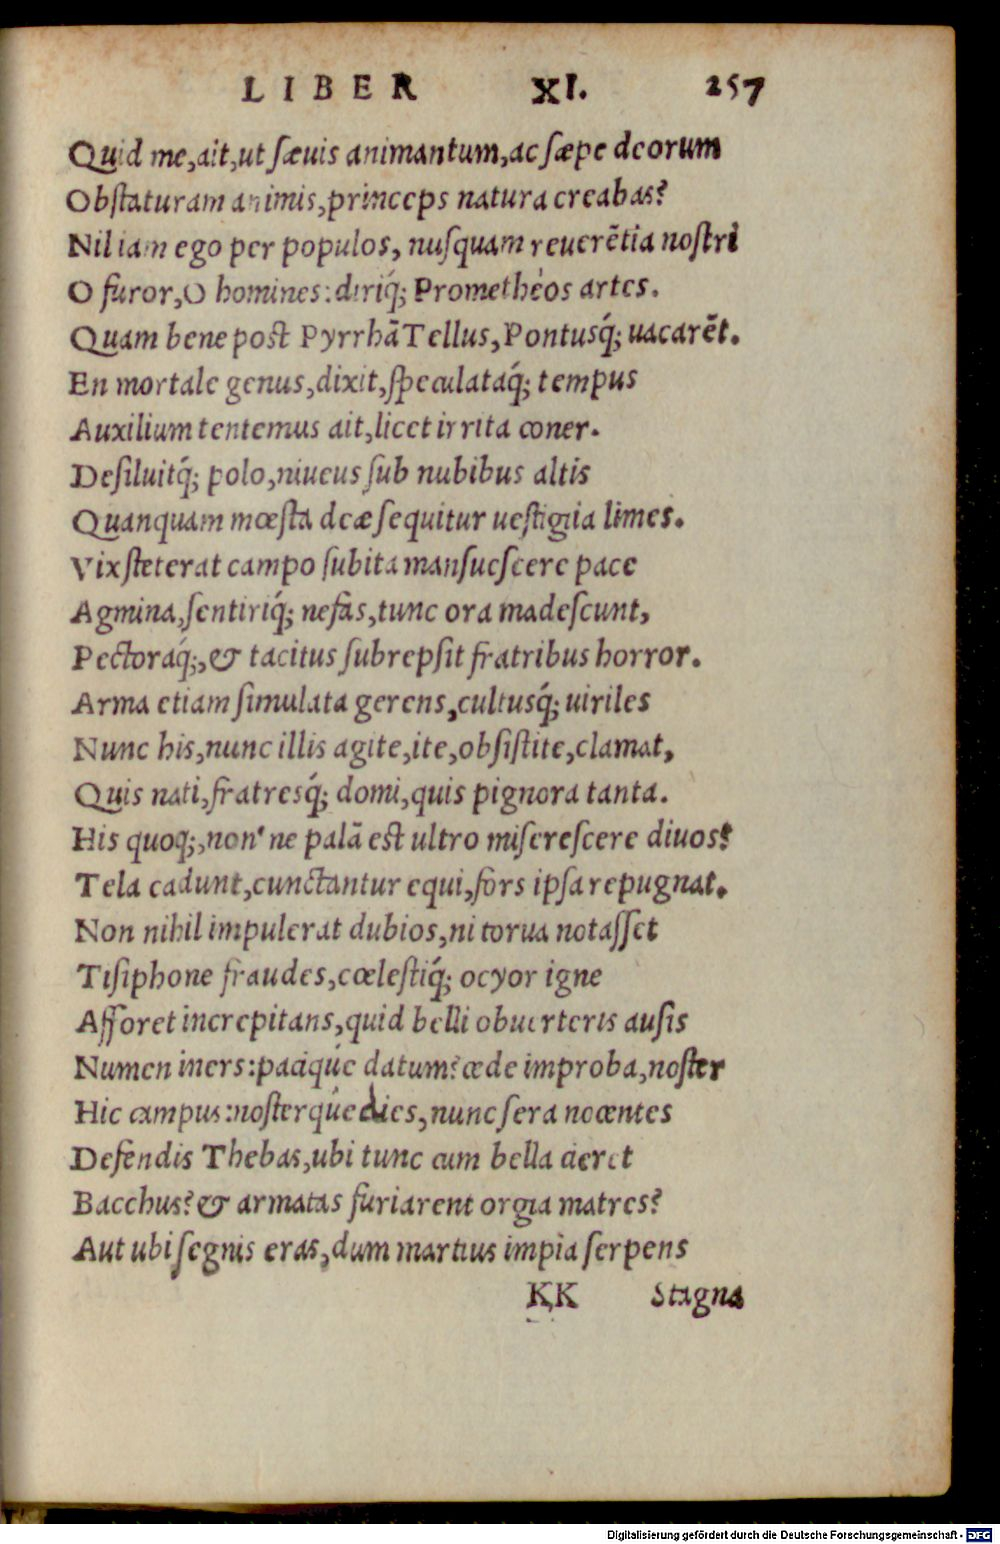 LIBER XI. 257
Quid me,ait,ut sæuis animantum,ac sæpe deorum
Obstaturam animis,princeps natura creabas?
Nil iam ego per populos, nusquam reuerẽtia nostri
O furor,O homines:diriq́; Prometheòs artes.
Quam bene post Pyrrhã Tellus,Pontusq́; uacarẽt.
En mortale genus,dixit,speculataq́; tempus
Auxilium tentemus ait,licet irrita coner.
Desiluitq́; polo,niueus sub nubibus altis
Quanquam mœsta deæ sequitur uestigia limes.
Vix steterat campo subita mansuescere pace
Agmina,sentiriq́; nefas,tunc ora madescunt,
Pectoraq́;,& tacitus subrepsit fratribus horror.
Arma etiam simulata gerens,cultusq́; uiriles
Nunc his,nunc illis agite,ite,obsistite,clamat,
Quis nati,fratresq́; domi,quis pignora tanta.
His quoq;,non'ne palã est ultro miserescere diuos?
Tela cadunt,cunctantur equi,fors ipsa repugnat.
Non nihil impulerat dubios,ni torua notasset
Tisiphone fraudes,cœlestiq́; ocyor igne
Afforet increpitans,quid belli obuerteris ausis
Numen iners:paciqúe datum?cede improba,noster
Hic campus:nosterqúe dies,nunc sera nocentes
Defendis Thebas,ubi tunc cum bella cieret
Bacchus?& armatas furiarent orgia matres?
Aut ubi segnis eras,dum martius impia serpens
KK Stagna
Digitalisierung gefördert durch die Deutsche Forschungsgemeinschaft - DFG